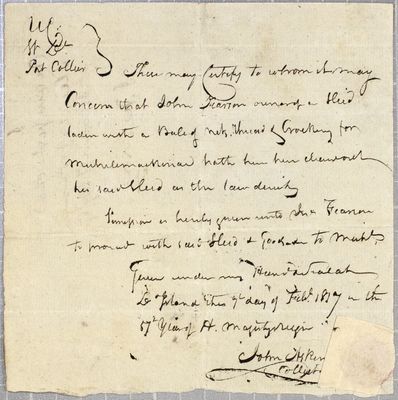 U.C.
W. D.
Port Collier
These may Certify to whom it may
Concern that John Fearson owner of a Sled
laden with a Bale of nets, Thread & Crockery for
Michilimackinac hath here been cleared
his said Sled as the law directs
Permission is hereby given unto Jno Fearson
to proceed with said Sled & Goods to Michl.
Given under my Hand & Seal at
Dd Island this 9th day of Feby. 1817 in the
57th Year of H. Majestys Reign
John Askin
Collector